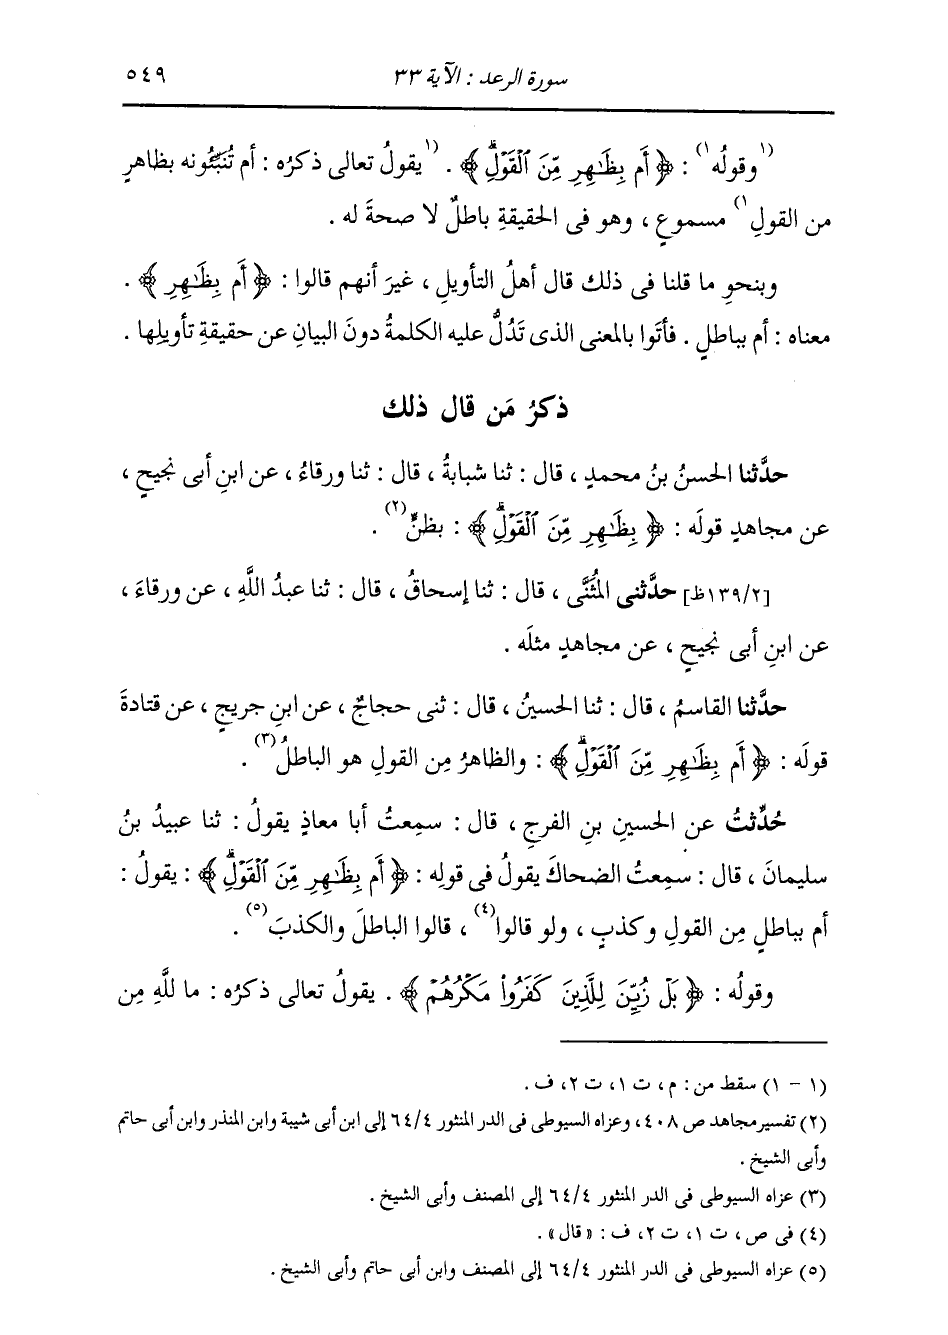 سورة الرعد : الآية ٣٣ ٥٤٩
(١وقولُه١) : ﴿ أَم بِظَٰهِرٍ مِّنَ ٱلْقَوْلِۗ ﴾ . (١يقولُ تعالى ذكرُه : أم تُنَبِّئُونه بظاهرٍ
من القولِ١) مسموعٍ ، وهو فى الحقيقةِ باطلٌ لا صحةَ له .
وبنحوِ ما قلنا فى ذلك قال أهلُ التأويلِ ، غيرَ أنهم قالوا : ﴿ أَم بِظَٰهِرٍ ﴾ .
معناه : أم بباطلٍ . فأتَوا بالمعنى الذى تَدُلُّ عليه الكلمةُ دونَ البيانِ عن حقيقةِ تأويلِها .
ذكرُ مَن قال ذلك
حدَّثنا الحسنُ بنُ محمدٍ ، قال : ثنا شبابةُ ، قال : ثنا ورقاءُ ، عن ابنِ أبى نجيحٍ ،
عن مجاهدٍ قولَه : ﴿ بِظَٰهِرٍ مِّنَ ٱلْقَوْلِۗ ﴾ : بظنٍّ(٢) .
[١٣٩/٢ظ] حدَّثنى المُثَنَّى ، قال : ثنا إسحاقُ ، قال : ثنا عبدُ اللَّهِ ، عن ورقاءَ ،
عن ابنِ أبى نجيحٍ ، عن مجاهدٍ مثلَه .
حدَّثنا القاسمُ ، قال : ثنا الحسينُ ، قال : ثنى حجاجٌ ، عن ابنِ جريجٍ ، عن قتادةَ
قولَه : ﴿ أَم بِظَٰهِرٍ مِّنَ ٱلْقَوْلِۗ ﴾ : والظاهرُ مِن القولِ هو الباطلُ(٣) .
حُدِّثتُ عن الحسينِ بنِ الفرجِ ، قال : سمِعتُ أبا معاذٍ يقولُ : ثنا عبيدُ بنُ
سليمانَ ، قال : سمِعتُ الضحاكَ يقولُ فى قولِه : ﴿ أَم بِظَٰهِرٍ مِّنَ ٱلْقَوْلِۗ ﴾ : يقولُ :
أم بباطلٍ مِن القولِ وكذبٍ ، ولو قالوا(٤) ، قالوا الباطلَ والكذبَ(٥) .
وقولُه : ﴿ بَلْ زُيِّنَ لِلَّذِينَ كَفَرُوا۟ مَكْرُهُمْ ﴾ . يقولُ تعالى ذكرُه : ما للَّهِ مِن
(١ - ١) سقط من : م ، ت ١، ت ٢، ف .
(٢) تفسير مجاهد ص ٤٠٨، وعزاه السيوطى فى الدر المنثور ٦٤/٤ إلى ابن أبى شيبة وابن المنذر وابن أبى حاتم
وأبى الشيخ .
(٣) عزاه السيوطى فى الدر المنثور ٦٤/٤ إلى المصنف وأبى الشيخ .
(٤) فى ص ، ت ١، ت ٢، ف : « قال » .
(٥) عزاه السيوطى فى الدر المنثور ٦٤/٤ إلى المصنف وابن أبى حاتم وأبى الشيخ .